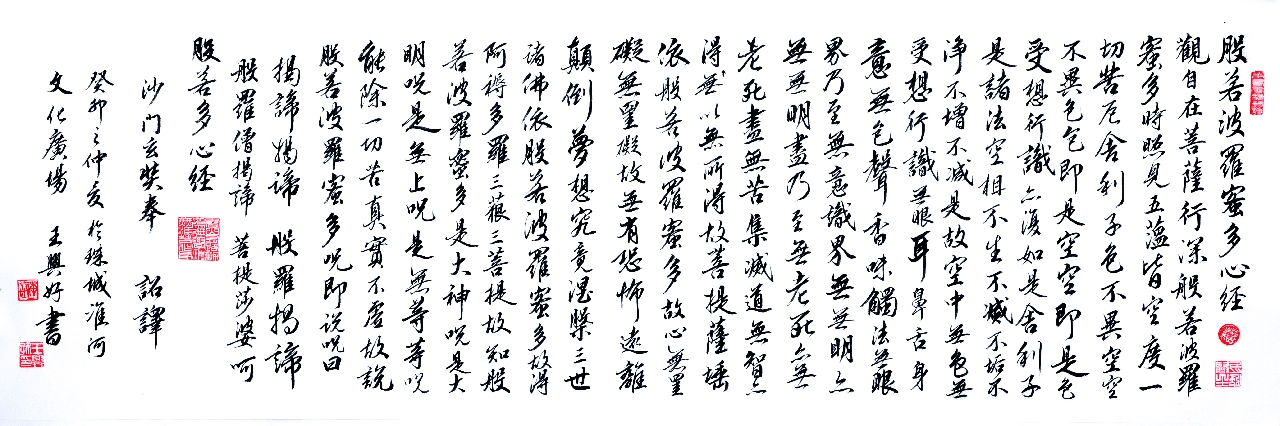 般若波羅蜜多心經
觀自在菩薩行深般若波羅
蜜多時照見五蘊皆空度一
切苦厄舍利子色不異空空
不異色色即是空空即是色
受想行識亦復如是舍利子
是諸法空相不生不滅不垢不
淨不增不減是故空中無色無
受想行識無眼耳鼻舌身
意無色聲香味觸法無眼
界乃至無意識界無無明亦
無無明盡乃至無老死亦無
老死盡無苦集滅道無智亦
得無以無所得故菩提薩埵
依般若波羅蜜多故心無罣
礙無罣礙故無有恐怖遠離
顛倒夢想究竟涅槃三世
諸佛依般若波羅蜜多故得
阿耨多羅三藐三菩提故知般
若波羅蜜多是大神咒是大
明咒是無上咒是無等等咒
能除一切苦真實不虛故說
般若波羅蜜多咒即說咒曰
揭諦揭諦 般羅揭諦
般羅僧揭諦 菩提莎婆呵
般若多心經
沙門玄奘奉 詔譯
癸卯之仲夏於珠城淮河
文化廣場 王興好書